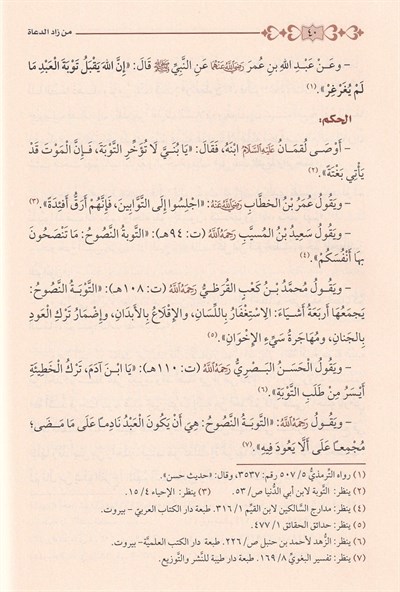 ٤٠ من زاد الدعاة
- وعَنْ عَبْدِ اللهِ بنِ عُمرَ رَضِيَ اللهُ عَنْهُمَا عَنِ النَّبِيِّ ﷺ قَالَ: «إِنَّ اللهَ يَقْبَلُ تَوْبَةَ العَبْدِ مَا
لَمْ يُغَرْغِرْ».(١)
الحكم:
- أَوْصَى لُقمَانُ عَلَيْهِ السَّلَام ابْنَهُ، فَقَالَ: «يَا بُنَيَّ لَا تُؤَخِّرِ التَّوْبَةَ، فَإِنَّ الْمَوْتَ قَدْ
يَأْتِي بَغْتَةً».(٢)
- ويَقُولُ عُمَرُ بْنُ الخطَّابِ رَضِيَ اللهُ عَنْهُ: «اجْلِسُوا إِلَى التَّوَّابِينَ، فَإِنَّهُمْ أَرَقُّ أَفئِدَةً».(٣)
- ويَقُولُ سَعِيدُ بْنُ المُسيَّبِ رَحِمَهُ اللهُ (ت: ٩٤هـ): «التَّوبَةُ النَّصُوحُ: مَا تَنْصَحُونَ
بِهَا أَنْفُسَكُمْ».(٤)
- ويَقُولُ مُحمَّدُ بْنُ كَعْبٍ القُرَظيُّ رَحِمَهُ اللهُ (ت: ١٠٨هـ): «التَّوْبَةُ النَّصُوحُ:
يَجمَعُهَا أَرْبَعَةُ أَشْيَاءَ: الاسْتِغْفَارُ بِاللِّسَانِ، وَالإِقْلاعُ بِالأَبدَانِ، وَإِضْمَارُ تَرْكِ العَودِ
بِالجَنَانِ، وَمُهَاجَرَةُ سَيِّءِ الإِخْوَانِ».(٥)
- ويَقُولُ الْحَسَنُ البَصْرِيُّ رَحِمَهُ اللهُ (ت: ١١٠هـ): «يَا ابْنَ آدَمَ، تَرْكُ الْخَطِيئَةِ
أَيْسَرُ مِنْ طَلَبِ التَّوْبَةِ».(٦)
- ويَقُولُ رَحِمَهُ اللهُ: «التَّوبَةُ النَّصُوحُ: هِيَ أَنْ يَكُونَ العَبْدُ نَادِمًا عَلَى مَا مَضَى؛
مُجْمِعًا عَلَى أَلَّا يَعُودَ فِيهِ».(٧)
(١) رواه الترمذيُّ ٥/ ٥٠٧ رقم: ٣٥٣٧، وقال: «حديث حسن».
(٢) ينظر: التَّوبة لابن أبي الدُّنيا ص/ ٥٣. (٣) ينظر: الإحياء ٤/ ١٥.
(٤) ينظر: مدارج السَّالكين لابن القيِّم ١/ ٣١٦. طبعة دار الكتاب العربيِّ - بيروت.
(٥) ينظر: حدائق الحقائق ١/ ٤٧٧.
(٦) ينظر: الزُّهد لأحمد بن حنبل ص/ ٢٢٦. طبعة دار الكتب العلميَّة- بيروت.
(٧) ينظر: تفسير البغويِّ ٨/ ١٦٩ طبعة دار طيبة للنَّشر والتَّوزيع.